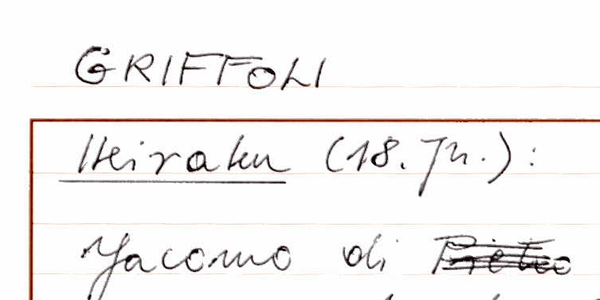 GRIFFOLI
Heiraten (18. Jh.):
Jacomo di